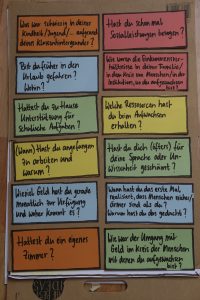 Was war schwierig in deiner
Kindheit/Jugend/... aufgrund
deines Klassenhintergundes?
Hast du schon mal
Sozialleistungen bezogen?
Bist du früher in
den Urlaub gefahren?
Wohin?
Wie waren die Einkommensver-
hältnisse in deiner Familie/
in dem Kreis der Menschen/in der
Institution, wo du aufgewachsen
bist?
Hattest du zu Hause
Unterstützung für
schulische Aufgaben?
Welche Ressourcen hast
du beim Aufwachsen
erhalten?
(Wann) Hast du angefangen
zu arbeiten und
warum?
Hast du dich (öfters) für
deine Sprache oder Un-
wissenheit geschämt?
Wieviel Geld hast du gerade
monatlich zur Verfügung
und woher kommt es?
Wann hast du das erste Mal
realisiert, dass Menschen reicher/
ärmer sind als du?
Warum hast du das gedacht?
Hattest du ein eigenes
Zimmer?
Wie war der Umgang mit
Geld im Kreis der Menschen
mit denen du aufgewachsen
bist?